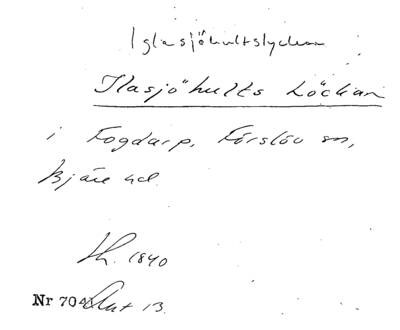 Iglasjöhultslyckan
Ilasjöhults Löckian
i Fogdarp, Förslöv sn,
Bjäre hd.
Lh. 1840
Nr 704 Akt 13.